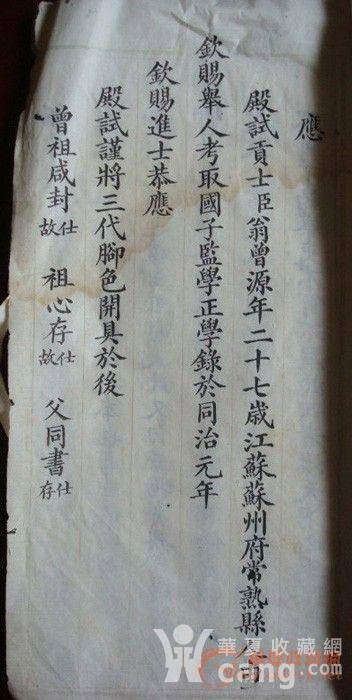 應
殿試貢士臣翁曾源年二十七歲江蘇蘇州府常熟縣
欽賜舉人考取國子監學正學錄於同治元年
欽賜進士恭應
殿試謹將三代腳色開具於後
曾祖咸封仕故 祖心存仕故 父同書仕存
華夏收藏網
cang.com